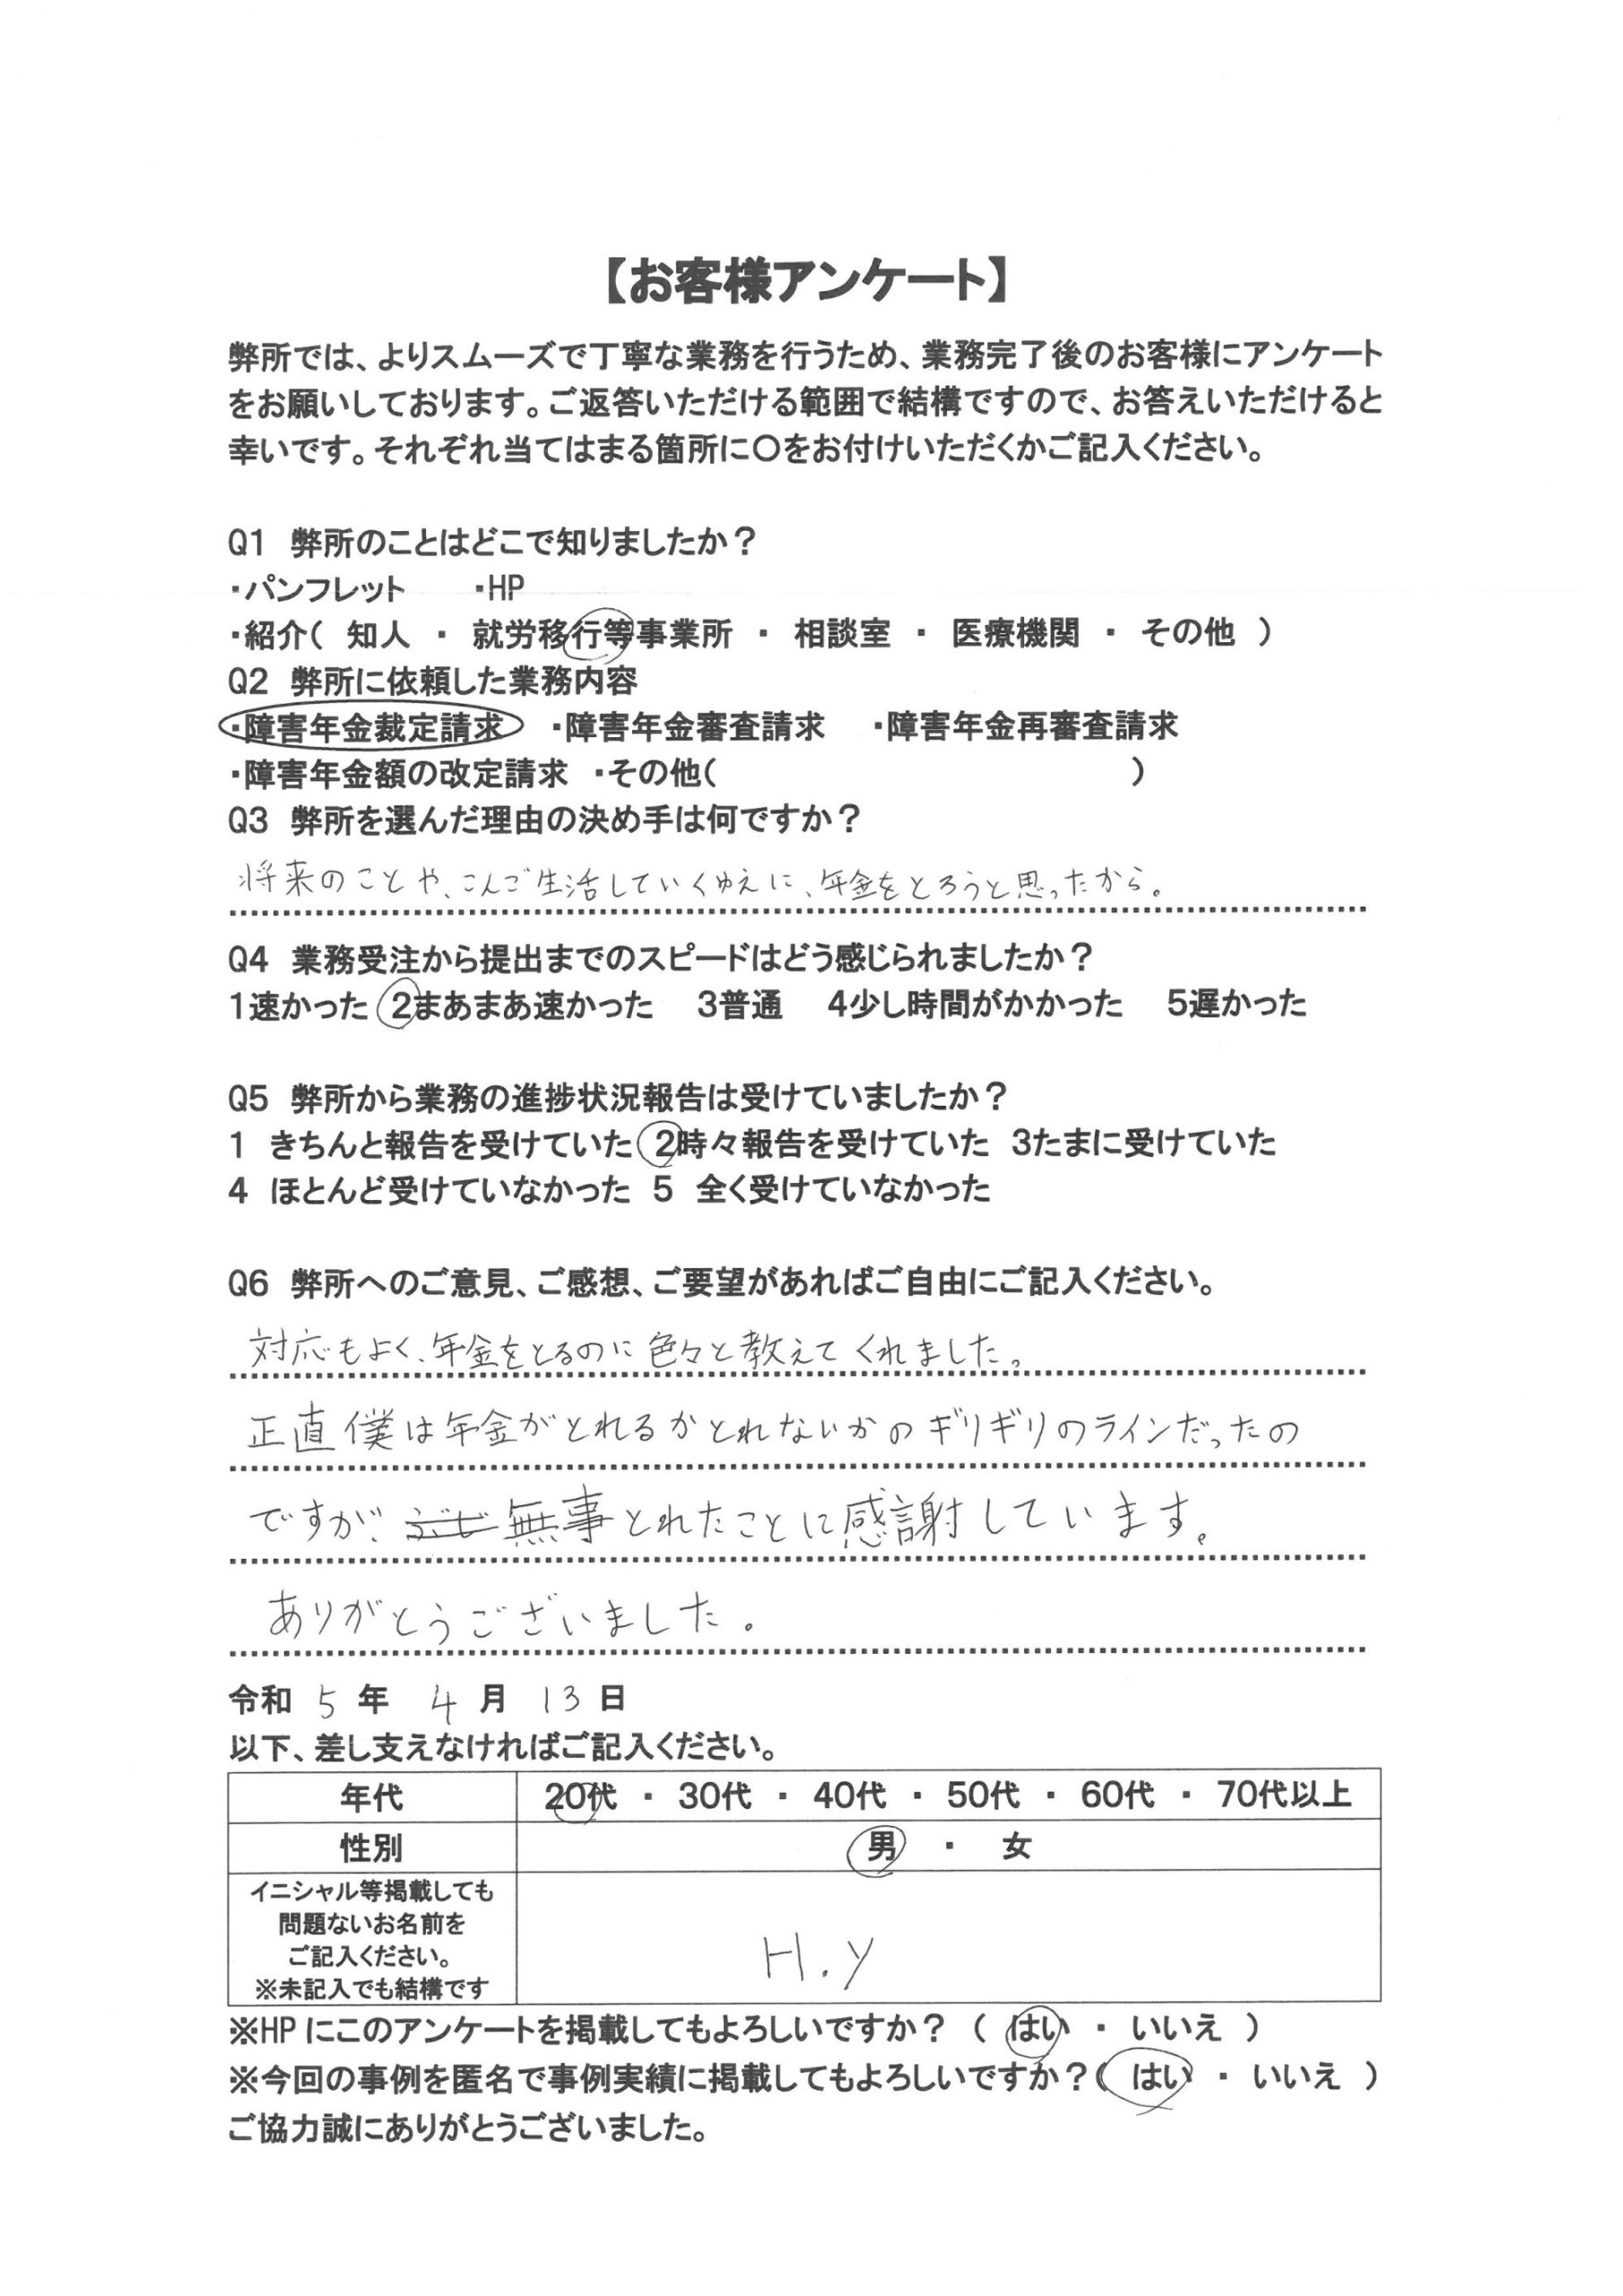 【お客様アンケート】
弊所では、よりスムーズで丁寧な業務を行うため、業務完了後のお客様にアンケート
をお願いしております。ご返答いただける範囲で結構ですので、お答えいただけると
幸いです。それぞれ当てはまる箇所に〇をお付けいただくかご記入ください。
Q1 弊所のことはどこで知りましたか？
・パンフレット ・HP
・紹介( 知人 ・ 就労移行等事業所 ・ 相談室 ・ 医療機関 ・ その他 )
Q2 弊所に依頼した業務内容
・障害年金裁定請求 ・障害年金審査請求 ・障害年金再審査請求
・障害年金額の改定請求 ・その他( )
Q3 弊所を選んだ理由の決め手は何ですか？
将来のことや、こんご生活していくゆえに、年金をとろうと思ったから。
Q4 業務受注から提出までのスピードはどう感じられましたか？
1速かった 2まあまあ速かった 3普通 4少し時間がかかった 5遅かった
Q5 弊所から業務の進捗状況報告は受けていましたか？
1 きちんと報告を受けていた 2時々報告を受けていた 3たまに受けていた
4 ほとんど受けていなかった 5 全く受けていなかった
Q6 弊所へのご意見、ご感想、ご要望があればご自由にご記入ください。
対応もよく、年金をとるのに色々と教えてくれました。
正直僕は年金がとれるかとれないかのギリギリのラインだったの
ですが、ぶじ無事とれたことに感謝しています。
ありがとうございました。
令和 5 年 4 月 13 日
以下、差し支えなければご記入ください。
年代 20代 ・ 30代 ・ 40代 ・ 50代 ・ 60代 ・ 70代以上
性別 男 ・ 女
イニシャル等掲載しても
問題ないお名前を
ご記入ください。
※未記入でも結構です
H.y
※HPにこのアンケートを掲載してもよろしいですか？ ( はい ・ いいえ )
※今回の事例を匿名で事例実績に掲載してもよろしいですか？( はい ・ いいえ )
ご協力誠にありがとうございました。